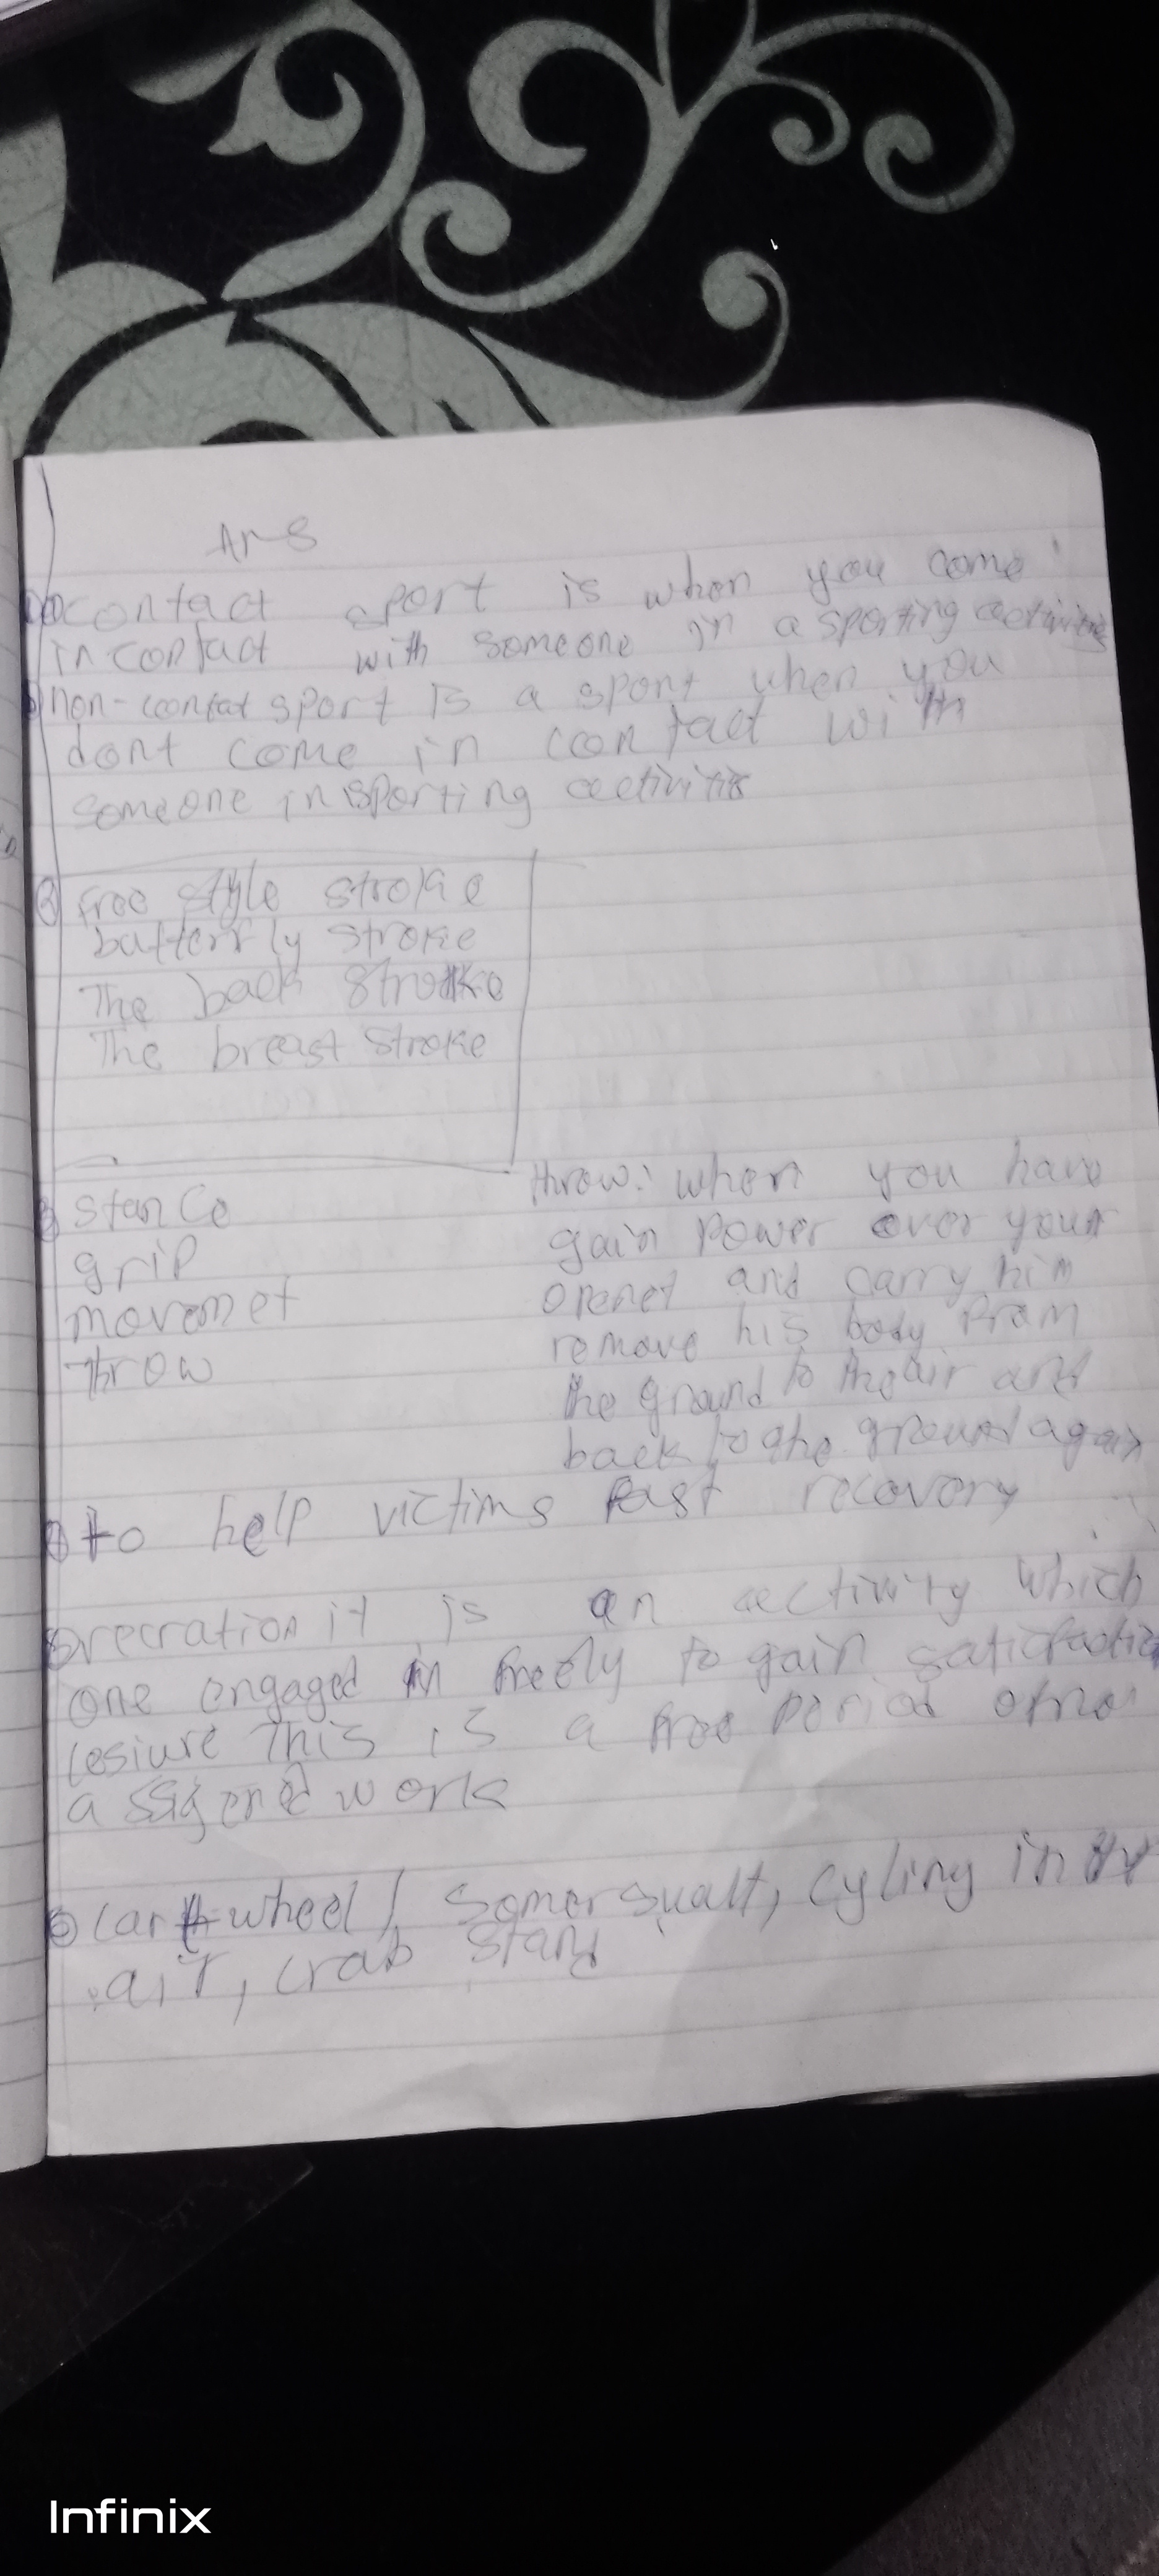 Ans
contact sport is when you come
in contact with someone in a sporting activities
non-contat sport is a sport when you
dont come in contact with
someone in sporting activitis
free style stroke
butterfly stroke
The back stroke
The breast stroke
stance
grip
movemet
Throw
throw: when you have
gain power over your
openet and carry him
remove his body from
the ground to the air and
back to the ground again
④ to help victims fast recovery
⑤ recration it is an activity which
one engaged in freely to gain satisfactio
lesiure This is a free period of no
assigened work
⑥ cart wheel, somersualt, cyling in
air, crab stand
Infinix